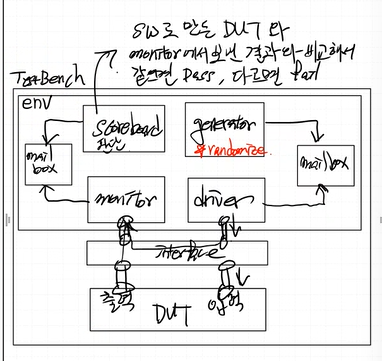 SW로 만든 DUT 와
monitor에서 보낸 결과와 비교해서
같으면 Pass, 다르면 Fail
TestBench
env
Scoreboard
generator
*randomize
mail
box
mailbox
monitor
driver
interface
출력
입력
DUT